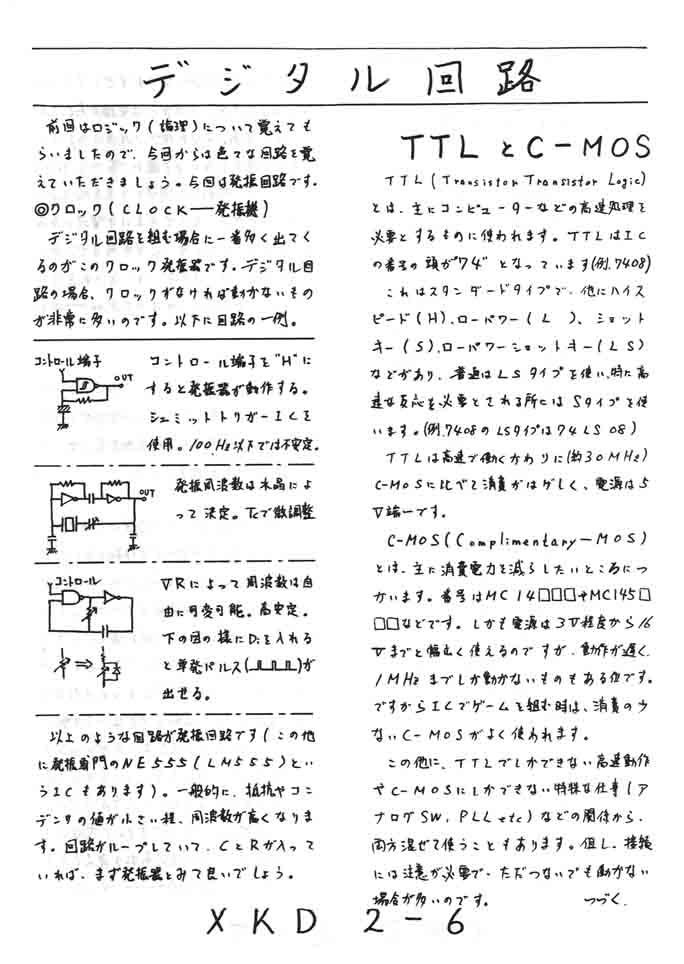 デジタル回路
前回はロジック(論理)について覚えても
らいましたので、今回からは色々な回路を覚
えていただきましょう。今回は発振回路です。
◎クロック(CLOCK――発振機)
デジタル回路を組む場合に一番多く出てく
るのがこのクロック発振器です。デジタル回
路の場合、クロックがなければ動かないもの
が非常に多いのです。以下に回路の一例。
コントロール端子
OUT
コントロール端子を"H"に
すると発振器が動作する。
シュミットトリガーICを
使用。100Hz以下では不安定。
OUT
発振周波数は水晶によ
って決定。Tcで微調整
コントロール
VRによって周波数は自
由に可変可能。高安定。
下の図の様にDiを入れる
と単発パルス( )が
出せる。
以上のような回路が発振回路です(この他
に発振専門のNE555(LM555)とい
うICもあります)。一般的に、抵抗やコン
デンサの値が小さい程、周波数が高くなりま
す。回路がループしていて、CとRが入って
いれば、まず発振器とみて良いでしょう。
TTLとC-MOS
TTL(Transistor Transistor Logic)
とは、主にコンピューターなどの高速処理を
必要とするものに使われます。TTLはIC
の番号の頭が"74"となっています(例.7408)
これはスタンダードタイプで、他にハイス
ピード(H)、ローパワー(L )、ショット
キー(S)、ローパワーショットキー(LS)
などがあり、普通はLSタイプを使い、特に高
速な反応を必要とされる所にはSタイプを使
います。(例.7408のLSタイプは74LS08)
TTLは高速で働くかわりに(約30MHz)
C-MOSに比べて消費がはげしく、電源は5
V端一です。
C-MOS(Complimentary-MOS)
とは、主に消費電力を減らしたいところにつ
かいます。番号はMC14□□□やMC145□
□□などです。しかも電源は3V程度から16
Vまでと幅広く使えるのですが、動作が遅く、
1MHzまでしか動かないものもある位です。
ですからICでゲームを組む時は、消費の少
ないC-MOSがよく使われます。
この他に、TTLでしかできない高速動作
やC-MOSにしかできない特殊な仕事(ア
ナログSW、PLL etc)などの関係から、
両方混ぜて使うこともあります。但し、接続
には注意が必要で、ただつないでも動かない
場合が多いのです。 つづく.
XKD 2-6